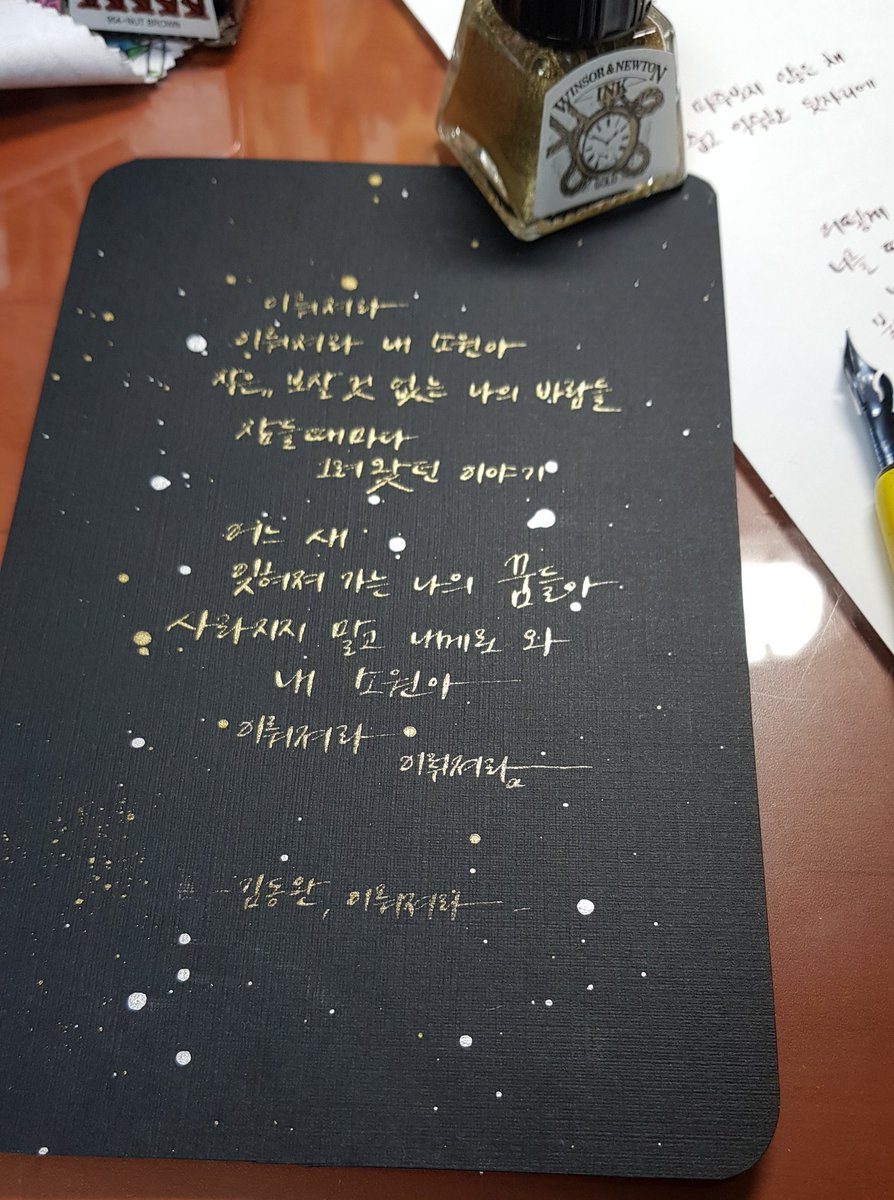 904-NUT BROWN
WINSOR & NEWTON
INK
GOLD
이뤄져라
이뤄져라 내 소원아
작은,, 보잘 것 없는 나의 바람들
잠들 때마다
그려왔던 이야기
어느 새
잊혀져 가는 나의 꿈들아
사라지지 말고 내게로 와
내 소원아
이뤄져라
이뤄져라
김동완, 이뤄져라
어떻게
나를